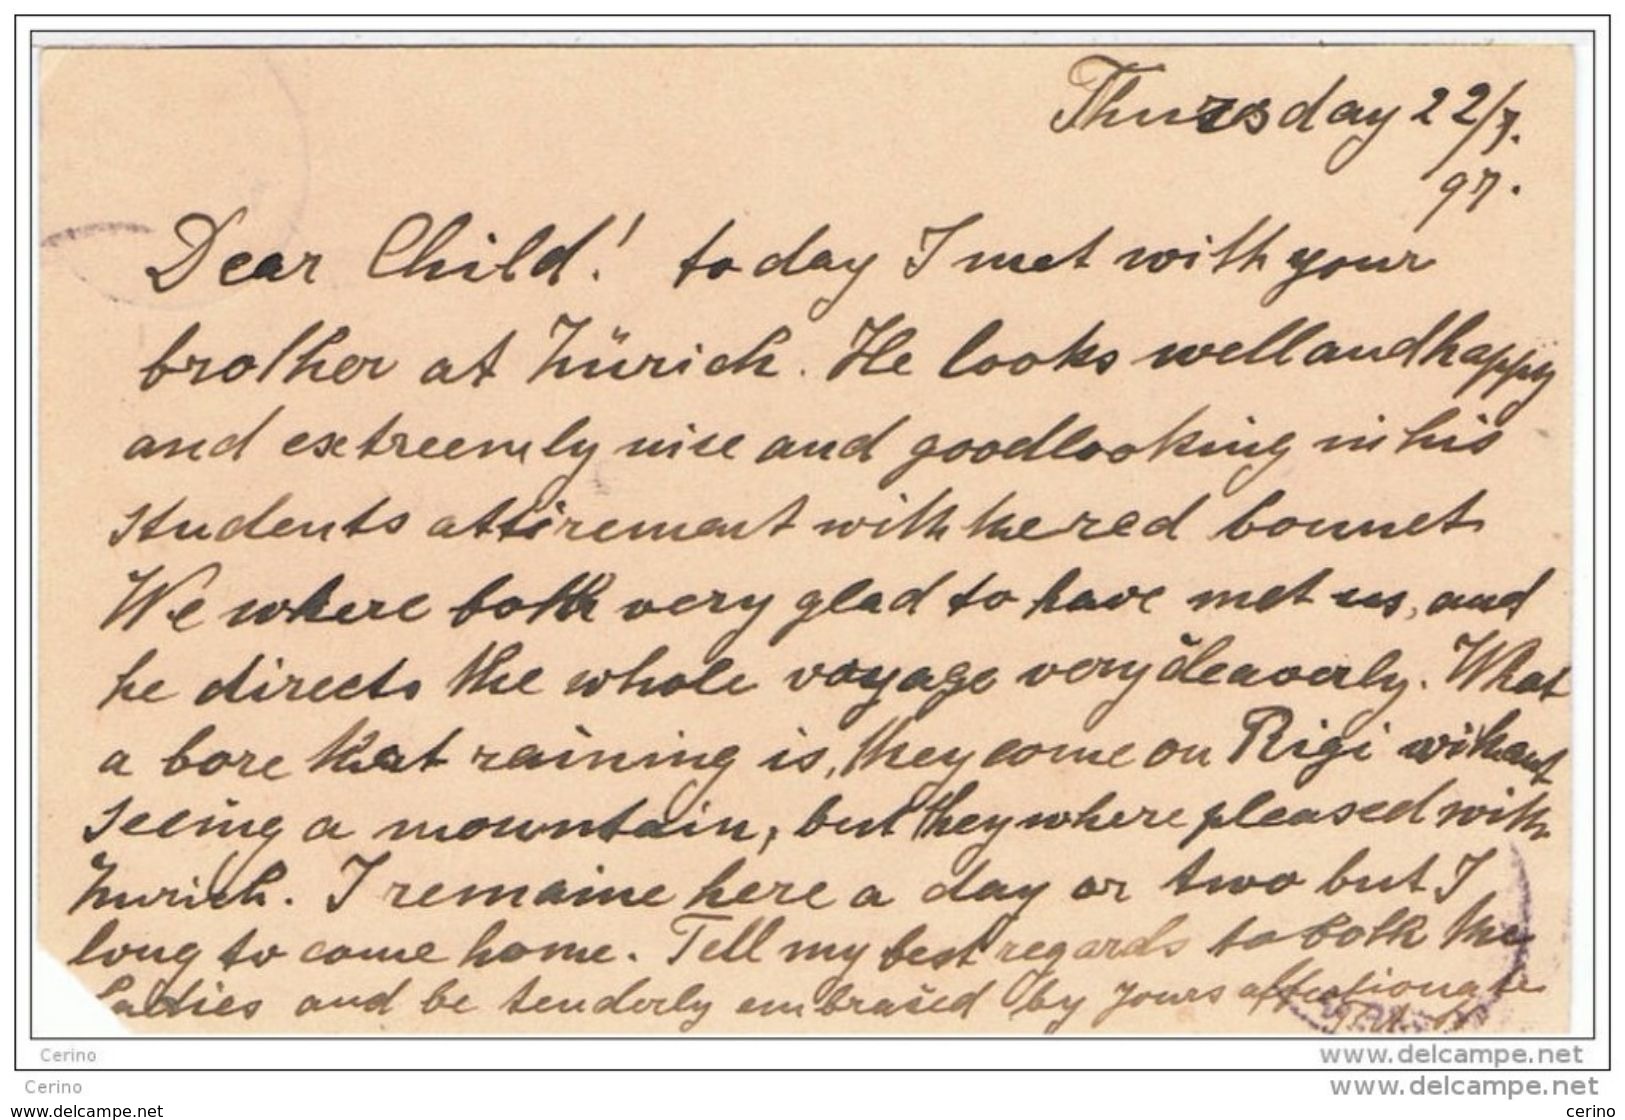 Thursday 22/7.
97.
Dear Child! today I met with your
brother at Zürich. He looks well and happy
and extreemly nice and goodlooking in his
students attirement with the red bonnet
We where both very glad to have met us, and
he directs the whole voyage very cleaverly. What
a bore that raining is, they come on Rigi without
seeing a mountain, but they where pleased with
Zurich. I remaine here a day or two but I
long to come home. Tell my best regards to both the
Ladies and be tenderly embrased by yours affectionate
Cerino
www.delcampe.net
Cerino
www.delcampe.net
www.delcampe.net
cerino